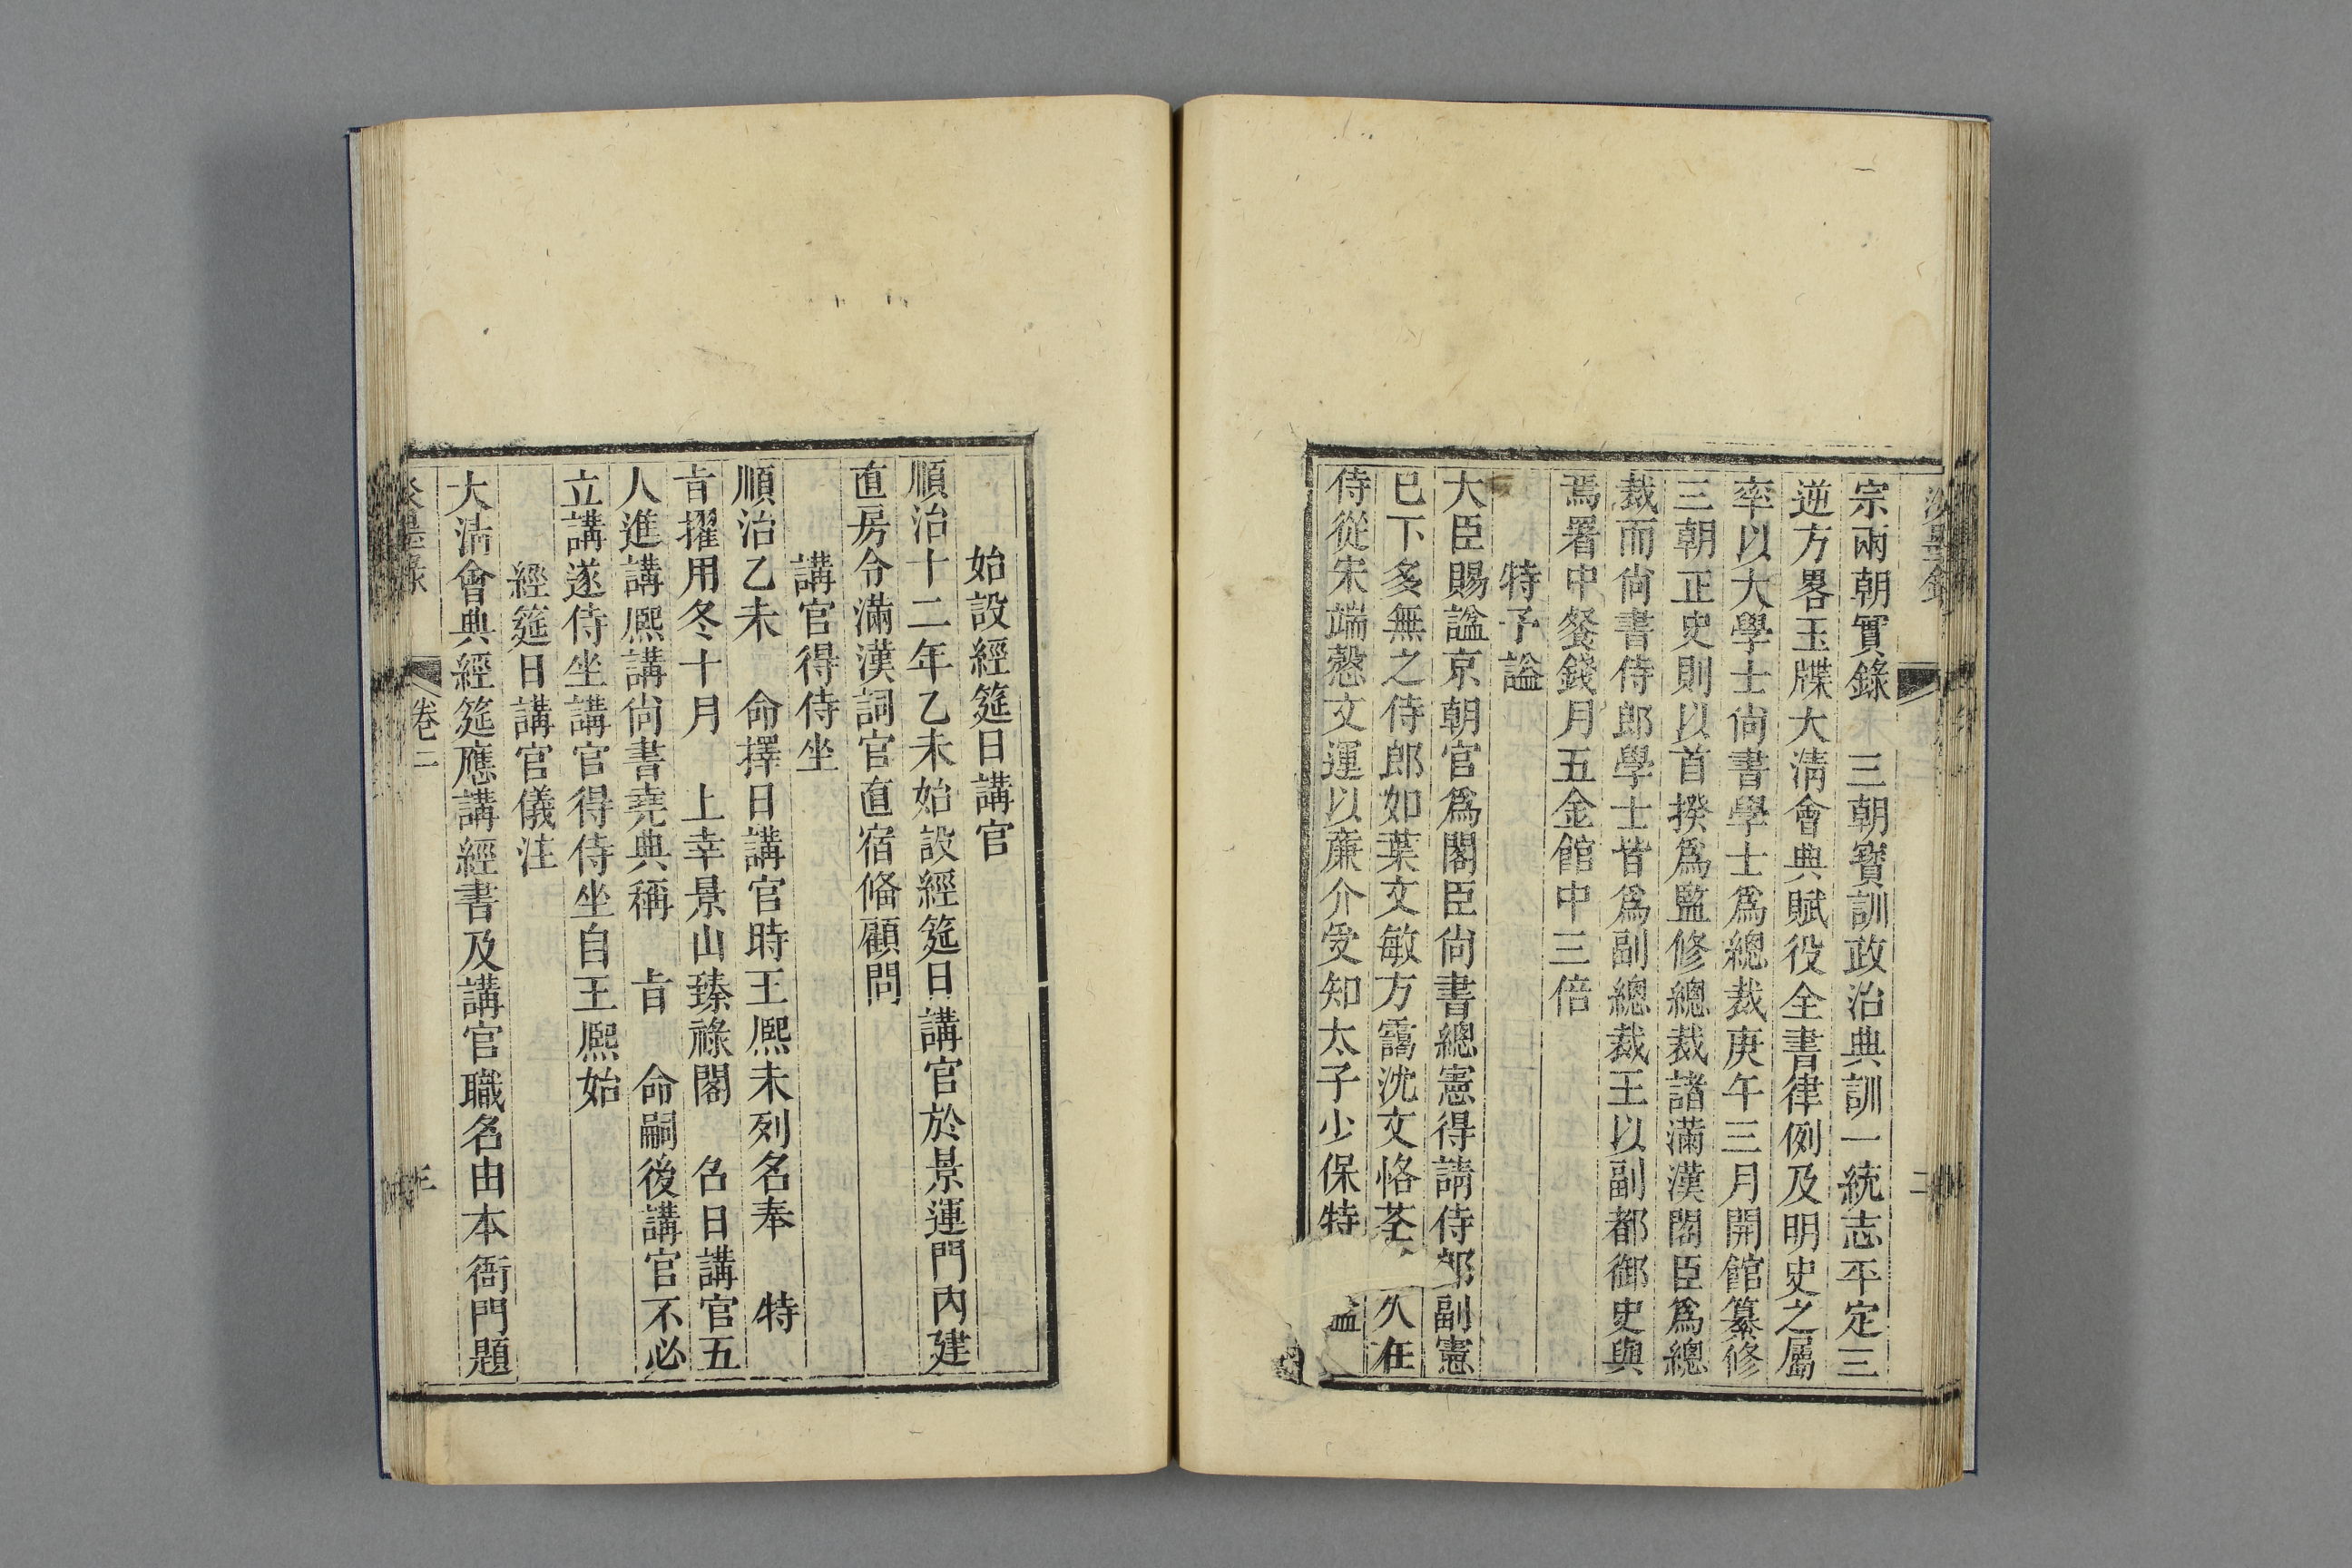 宗兩朝實錄　三朝寶訓政治典訓一統志平定三
逆方畧玉牒大清會典賦役全書律例及明史之屬
率以大學士尙書學士爲總裁庚午三月開館纂修
三朝正史則以首揆爲監修總裁諸滿漢閣臣爲總
裁而尙書侍郎學士皆爲副總裁王以副都御史與
焉署中餐錢月五金館中三倍
特予諡
大臣賜諡京朝官爲閣臣尙書總憲得請侍郎副憲
已下多無之侍郎如葉文敏方靄沈文恪荃久在
侍從宋端慤文運以廉介受知太子少保特
始設經筵日講官
順治十二年乙未始設經筵日講官於景運門內建
直房令滿漢詞官直宿俻顧問
講官得侍坐
順治乙未　命擇日講官時王熙未列名奉　特
㫖擢用冬十月　上幸景山臻祿閣　召日講官五
人進講熙講尙書堯典稱　㫖　命嗣後講官不必
立講遂侍坐講官得侍坐自王熙始
經筵日講官儀注
大清會典經筵應講經書及講官職名由本衙門題
卷二